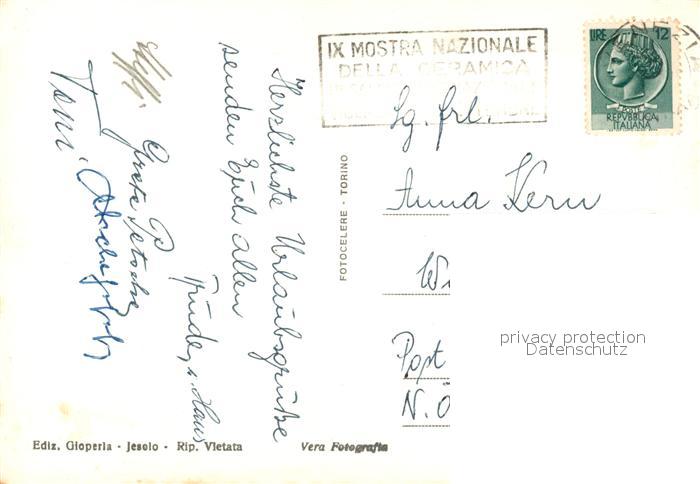 IX MOSTRA NAZIONALE
DELLA CERAMICA
LIRE 12
POSTE
REPVBBLICA
ITALIANA
Sg. Frl.
Anna Kern
Wi
Post
N. Ö
privacy protection
Datenschutz
FOTOCELERE - TORINO
Herzlichste Urlaubsgrüße
senden Euch allen
Trude, u. Hans
Grete
Toni
Ediz. Gioperla - Jesolo - Rip. Vietata
Vera Fotografia